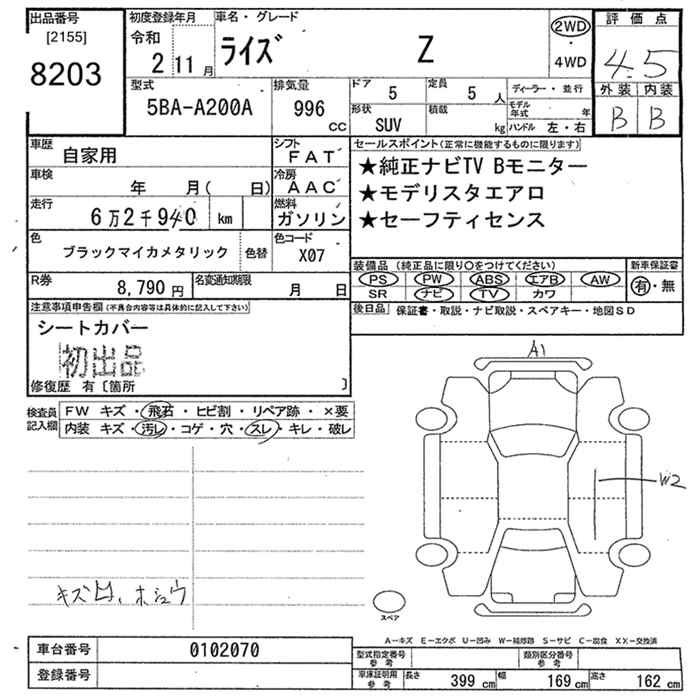 出品番号
[2155]
8203
初度登録年月
令和
2 11月
車名・グレード
ライズ Z
2WD
・
4WD
評価点
4.5
外装 内装
B B
型式
5BA-A200A
排気量
996
CC
ドア
5
定員
5 人
形状
SUV
積載
kg
ディーラー・並行
モデル年式 年
ハンドル 左・右
車歴
自家用
シフト
FAT
車検
年 月( 日)
冷房
AAC
走行
6万2千940 km
燃料
ガソリン
色
ブラックマイカメタリック
色替
色コード
X07
R券
8,790円
名変通知期限
月 日
セールスポイント(正常に機能するものに限ります)
★純正ナビTV Bモニター
★モデリスタエアロ
★セーフティセンス
装備品 (純正品に限り○をつけてください)
PS PW ABS エアB AW
SR ナビ TV カワ
新車保証書
有・無
後日品 保証書・取説・ナビ取説・スペアキー・地図SD
注意事項申告欄(不具合内容等は具体的に記入して下さい)
シートカバー
初出品
修復歴 有〔箇所 〕
検査員
記入欄
FW キズ・飛石・ヒビ割・リペア跡・×要
内装 キズ・汚レ・コゲ・穴・スレ・キレ・破レ
A1
W2
キズ凹、ホシュウ
スペア
A-キズ E-エクボ U-凹み W-補修跡 S-サビ C-腐食 XX-交換済
車台番号 0102070
登録番号
型式指定番号
参考
類別区分番号
参考
車庫証明用
参考
長さ 399 cm
幅 169 cm
高さ 162 cm